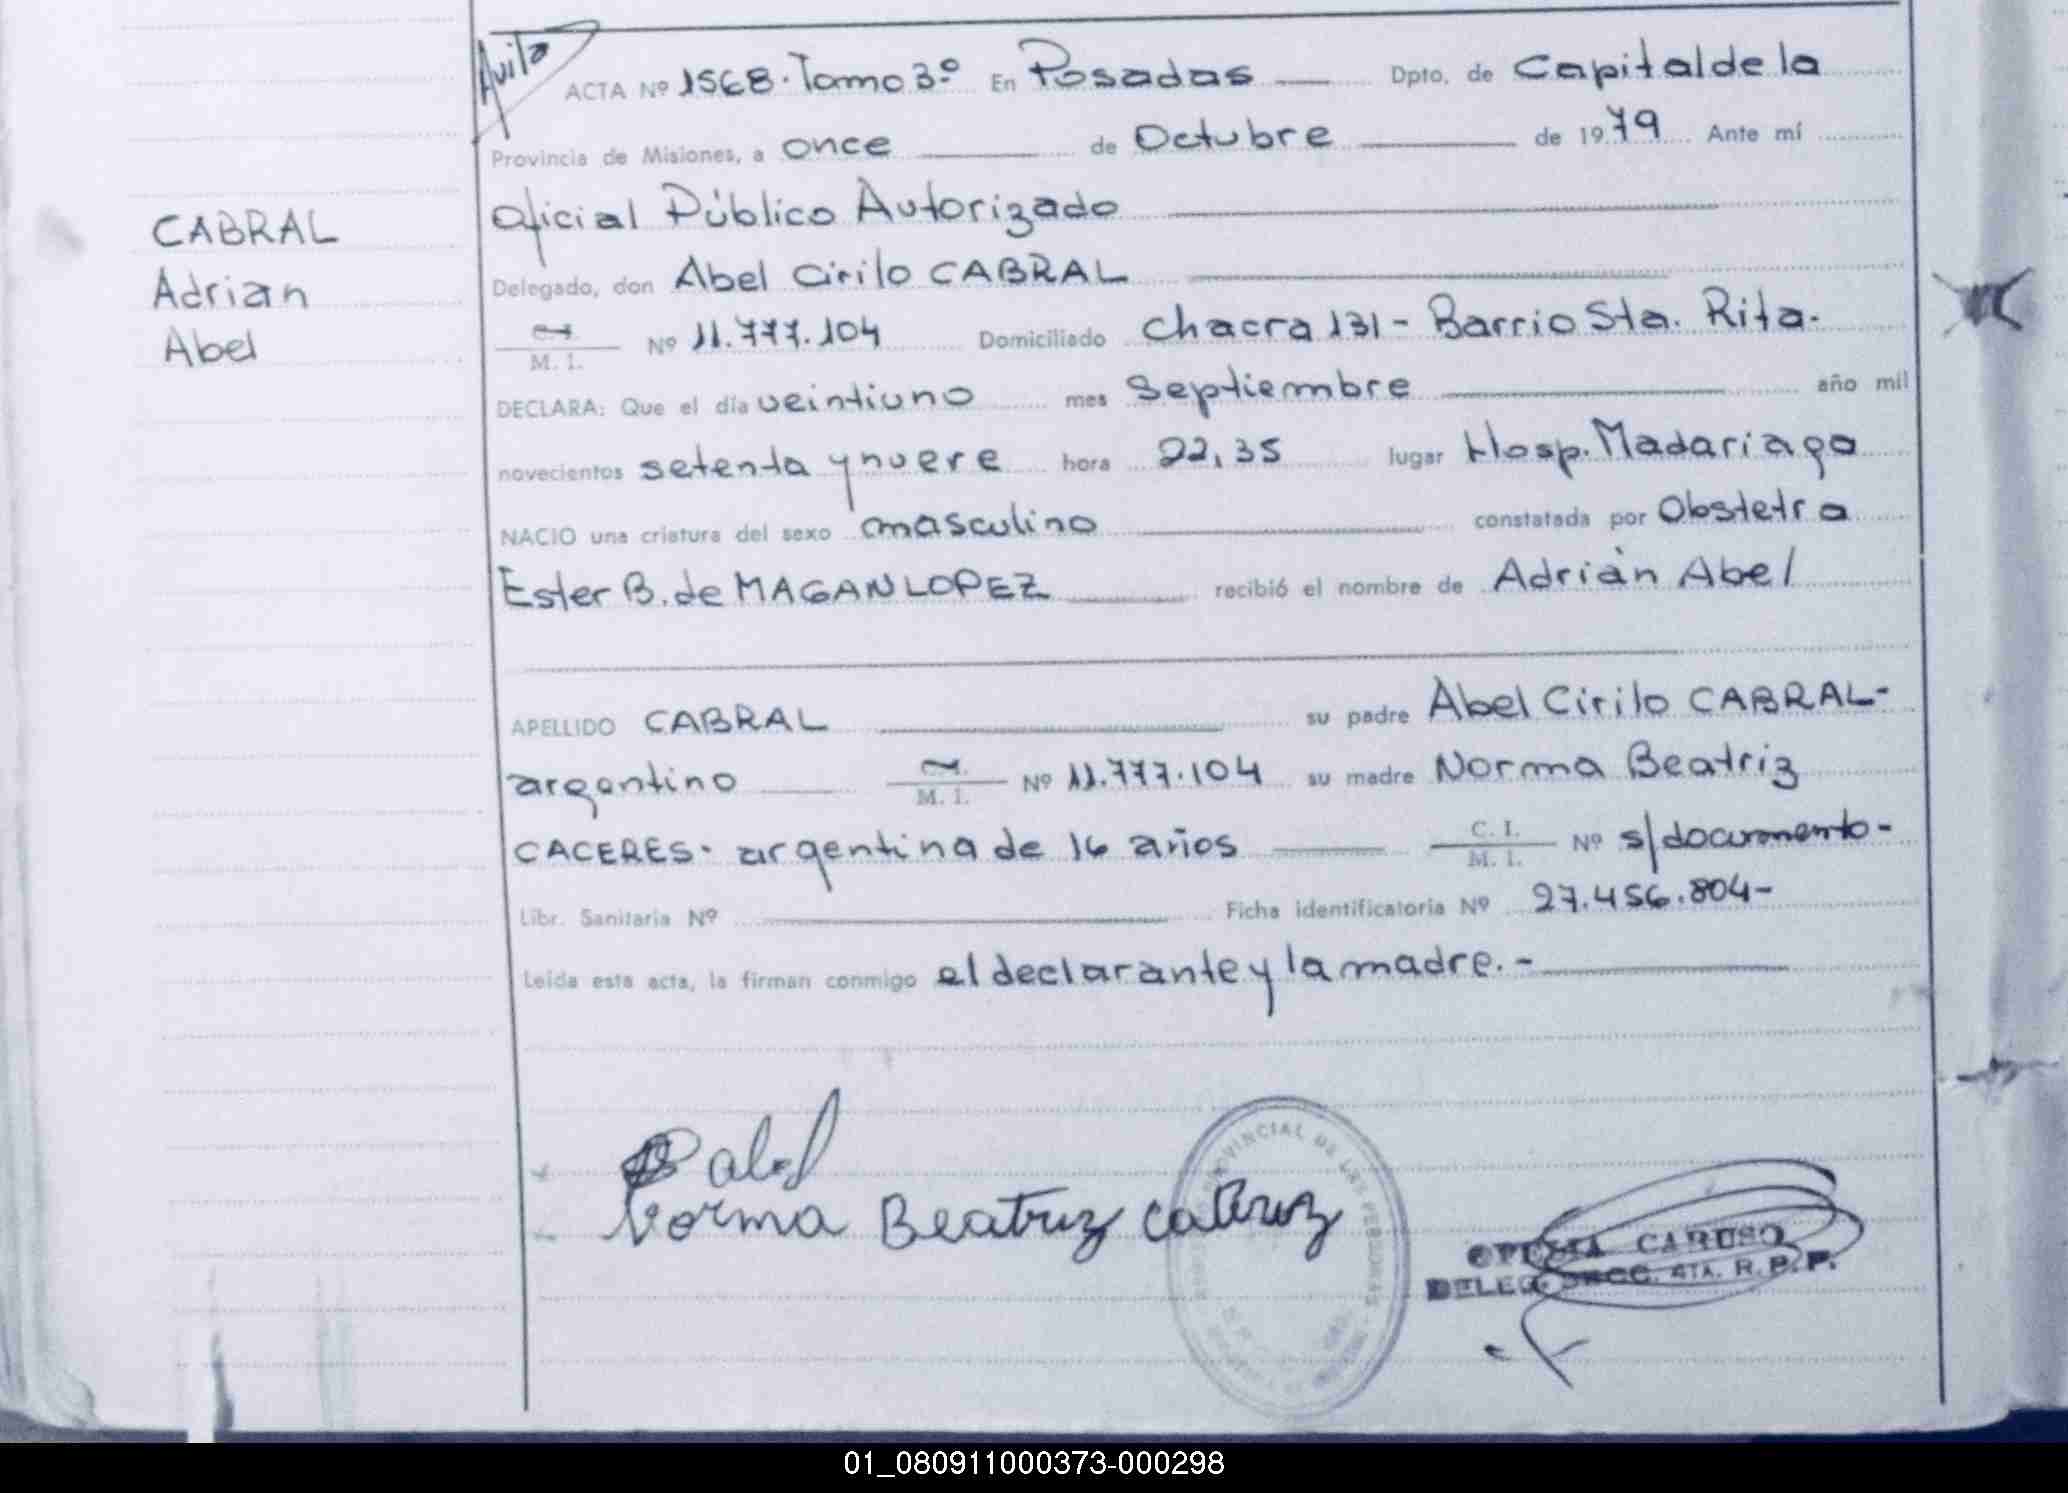 Avila
ACTA Nº 1568. Tomo 3º En Posadas Dpto. de Capital de la
Provincia de Misiones, a once de Octubre de 1979 Ante mí
Oficial Público Autorizado
CABRAL
Adrian
Abel
Delegado, don Abel Cirilo CABRAL
M. I. Nº 11.777.104 Domiciliado Chacra 131 - Barrio Sta. Rita.
DECLARA: Que el día veintiuno mes Septiembre año mil
novecientos setenta y nueve hora 22,35 lugar Hosp. Madariaga
NACIO una criatura del sexo masculino constatada por Obstetra
Ester B. de MAGAN LOPEZ recibió el nombre de Adrián Abel
APELLIDO CABRAL su padre Abel Cirilo CABRAL-
argentino M. I. Nº 11.777.104 su madre Norma Beatriz
CACERES. argentina de 16 años C. I. M. I. Nº s/documento-
Libr. Sanitaria Nº Ficha identificatoria Nº 27.456.804-
Leída esta acta, la firman conmigo el declarante y la madre.-
Norma Beatriz
PROVINCIAL DE LAS PERSONAS
CARUSO
DELEG. SECC. 4TA. R.P.P.
01_080911000373-000298